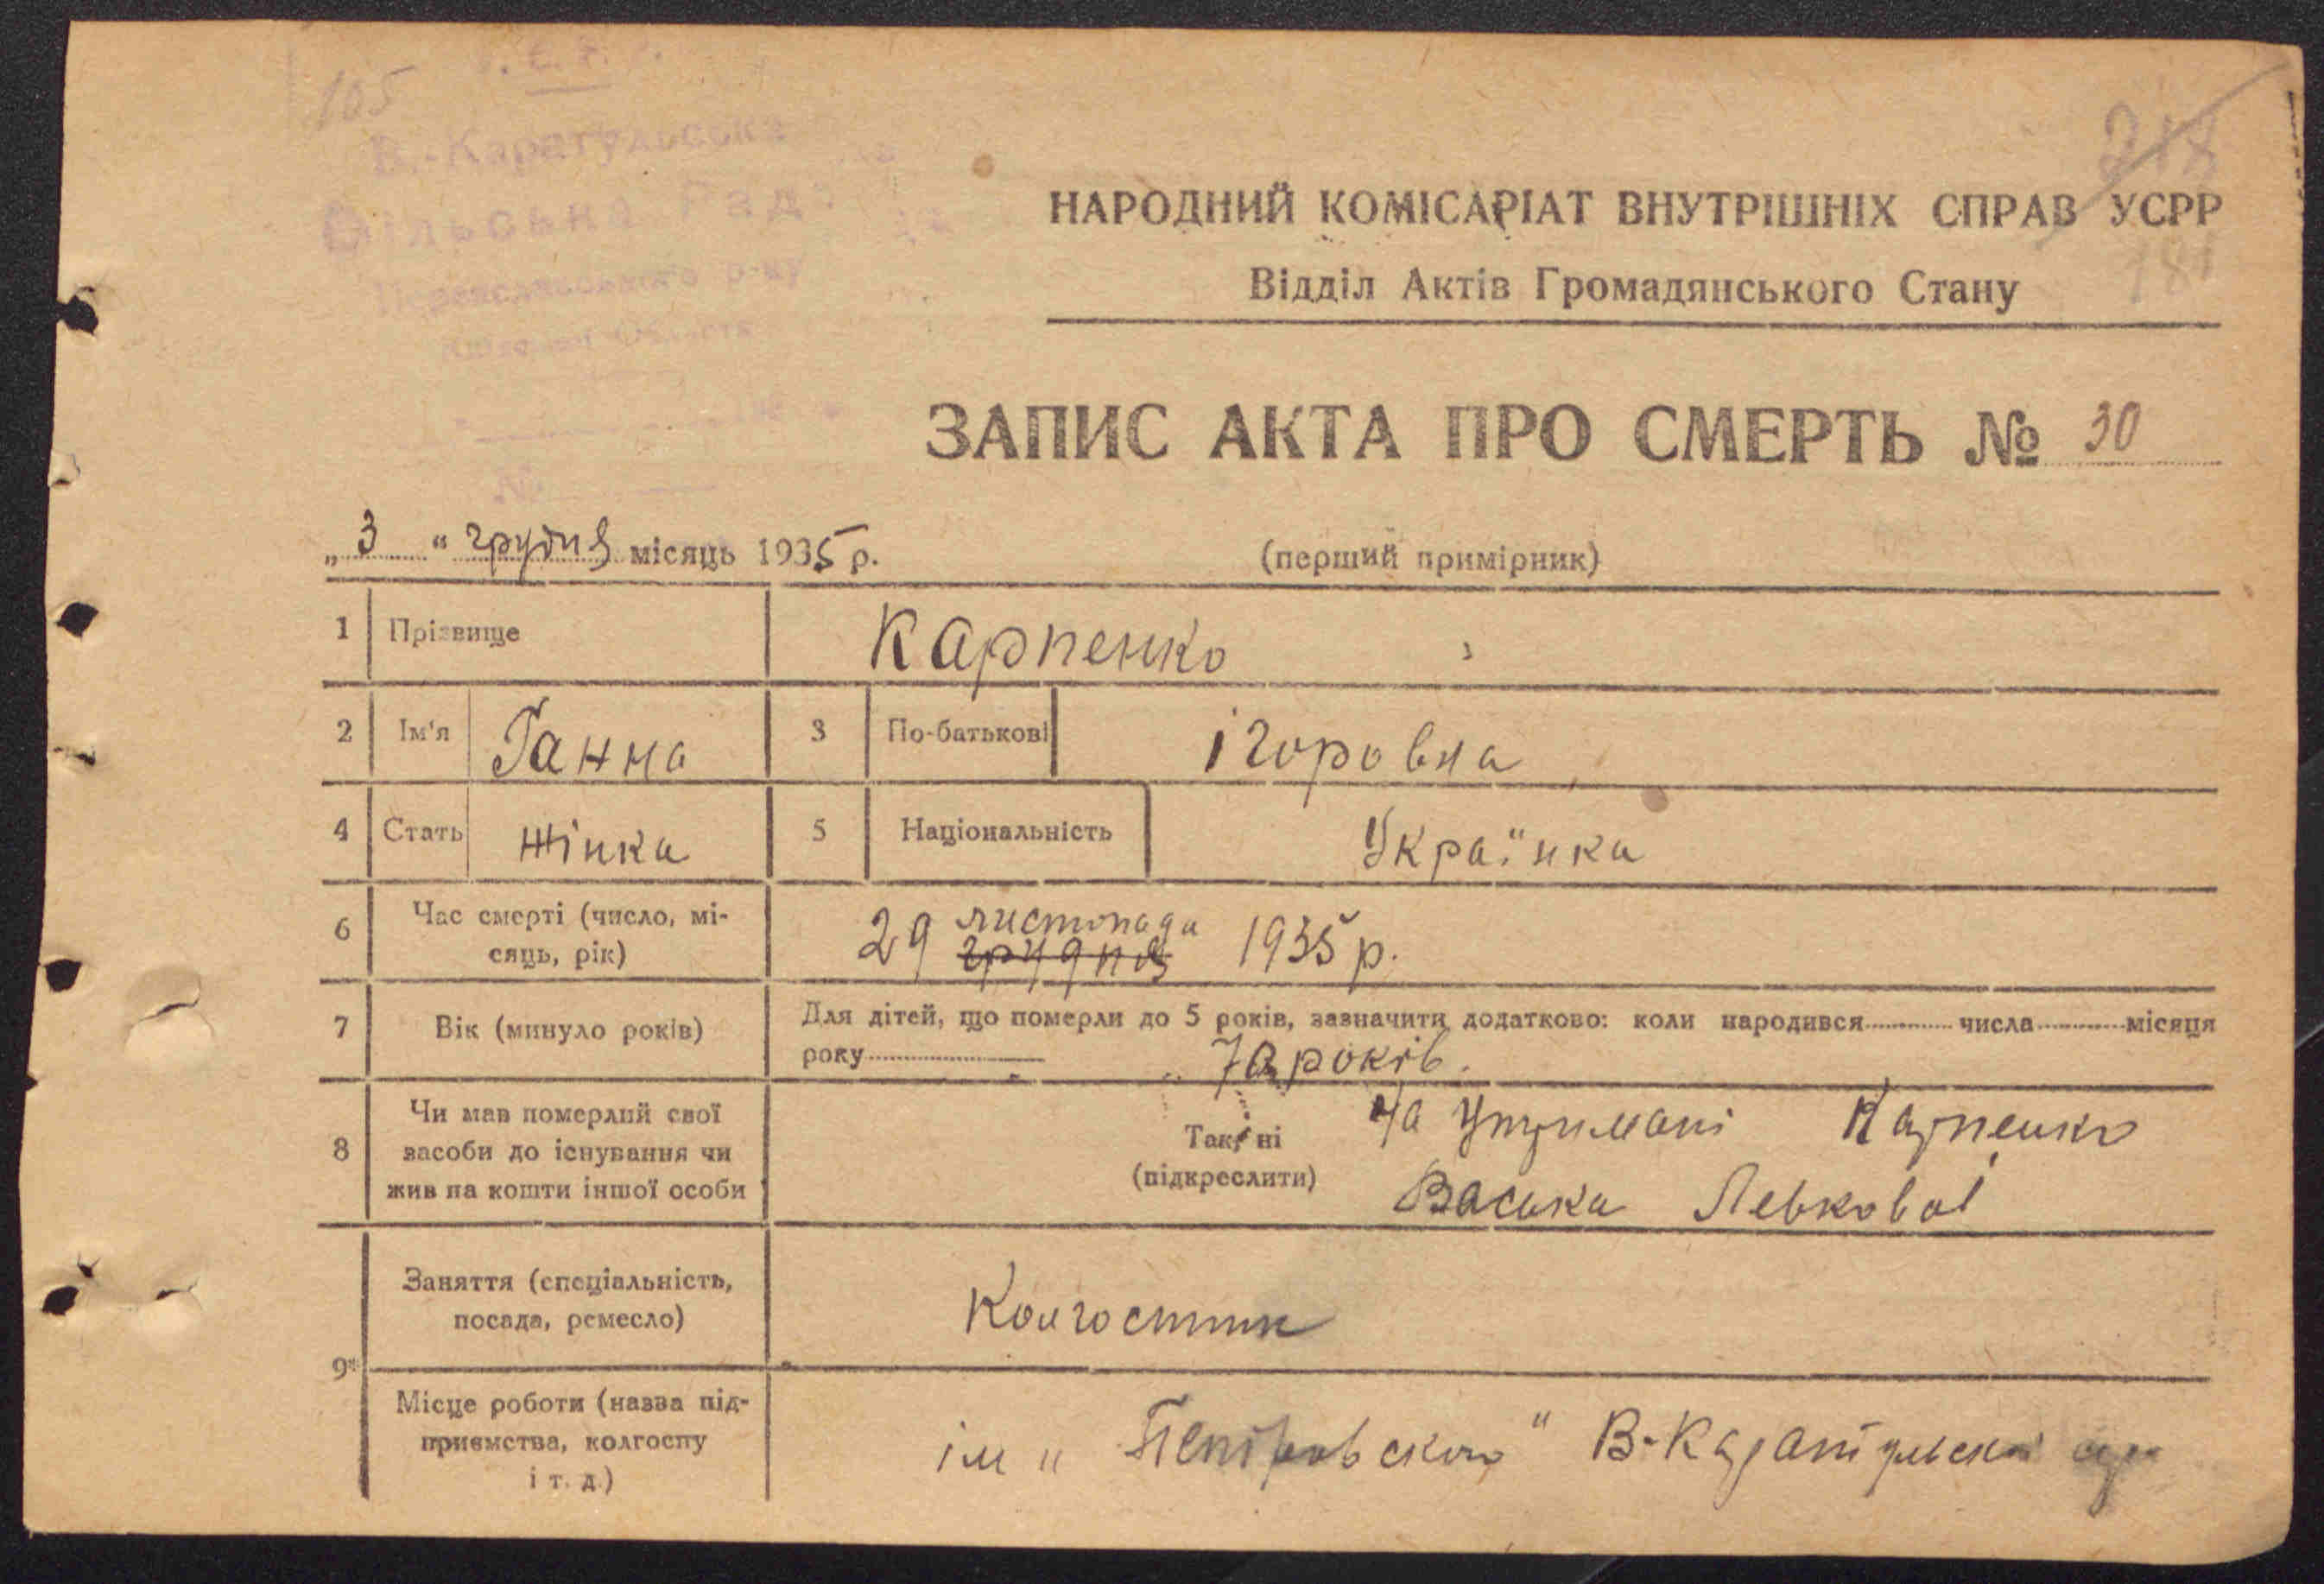 105
В.-Каратульська
Сільська Рада
Переяславського р-ну
218
НАРОДНИЙ КОМІСАРІАТ ВНУТРІШНІХ СПРАВ УСРР
Відділ Актів Громадянського Стану
181
ЗАПИС АКТА ПРО СМЕРТЬ № 30
„ 3 “ грудня місяць 1935 р.
(перший примірник)
1 Прізвище Карпенко
2 Ім'я Ганна 3 По-батькові ігоровна
4 Стать жінка 5 Національність Українка
6 Час смерті (число, мі-
сяць, рік)
29 листопада 1935 р.
грудня
7 Вік (минуло років)
Для дітей, що померли до 5 років, зазначити додатково: коли народився числа місяця
року
70 років.
8 Чи мав померлий свої
засоби до існування чи
жив на кошти іншої особи
Так, ні
(підкреслити)
На утримані Карпенко
Васька Левкові
9*
Заняття (спеціальність,
посада, ремесло)
Колгоспник
Місце роботи (назва під-
приємства, колгоспу
і т. д.)
ім „ Петровского “ В-Каратульскої